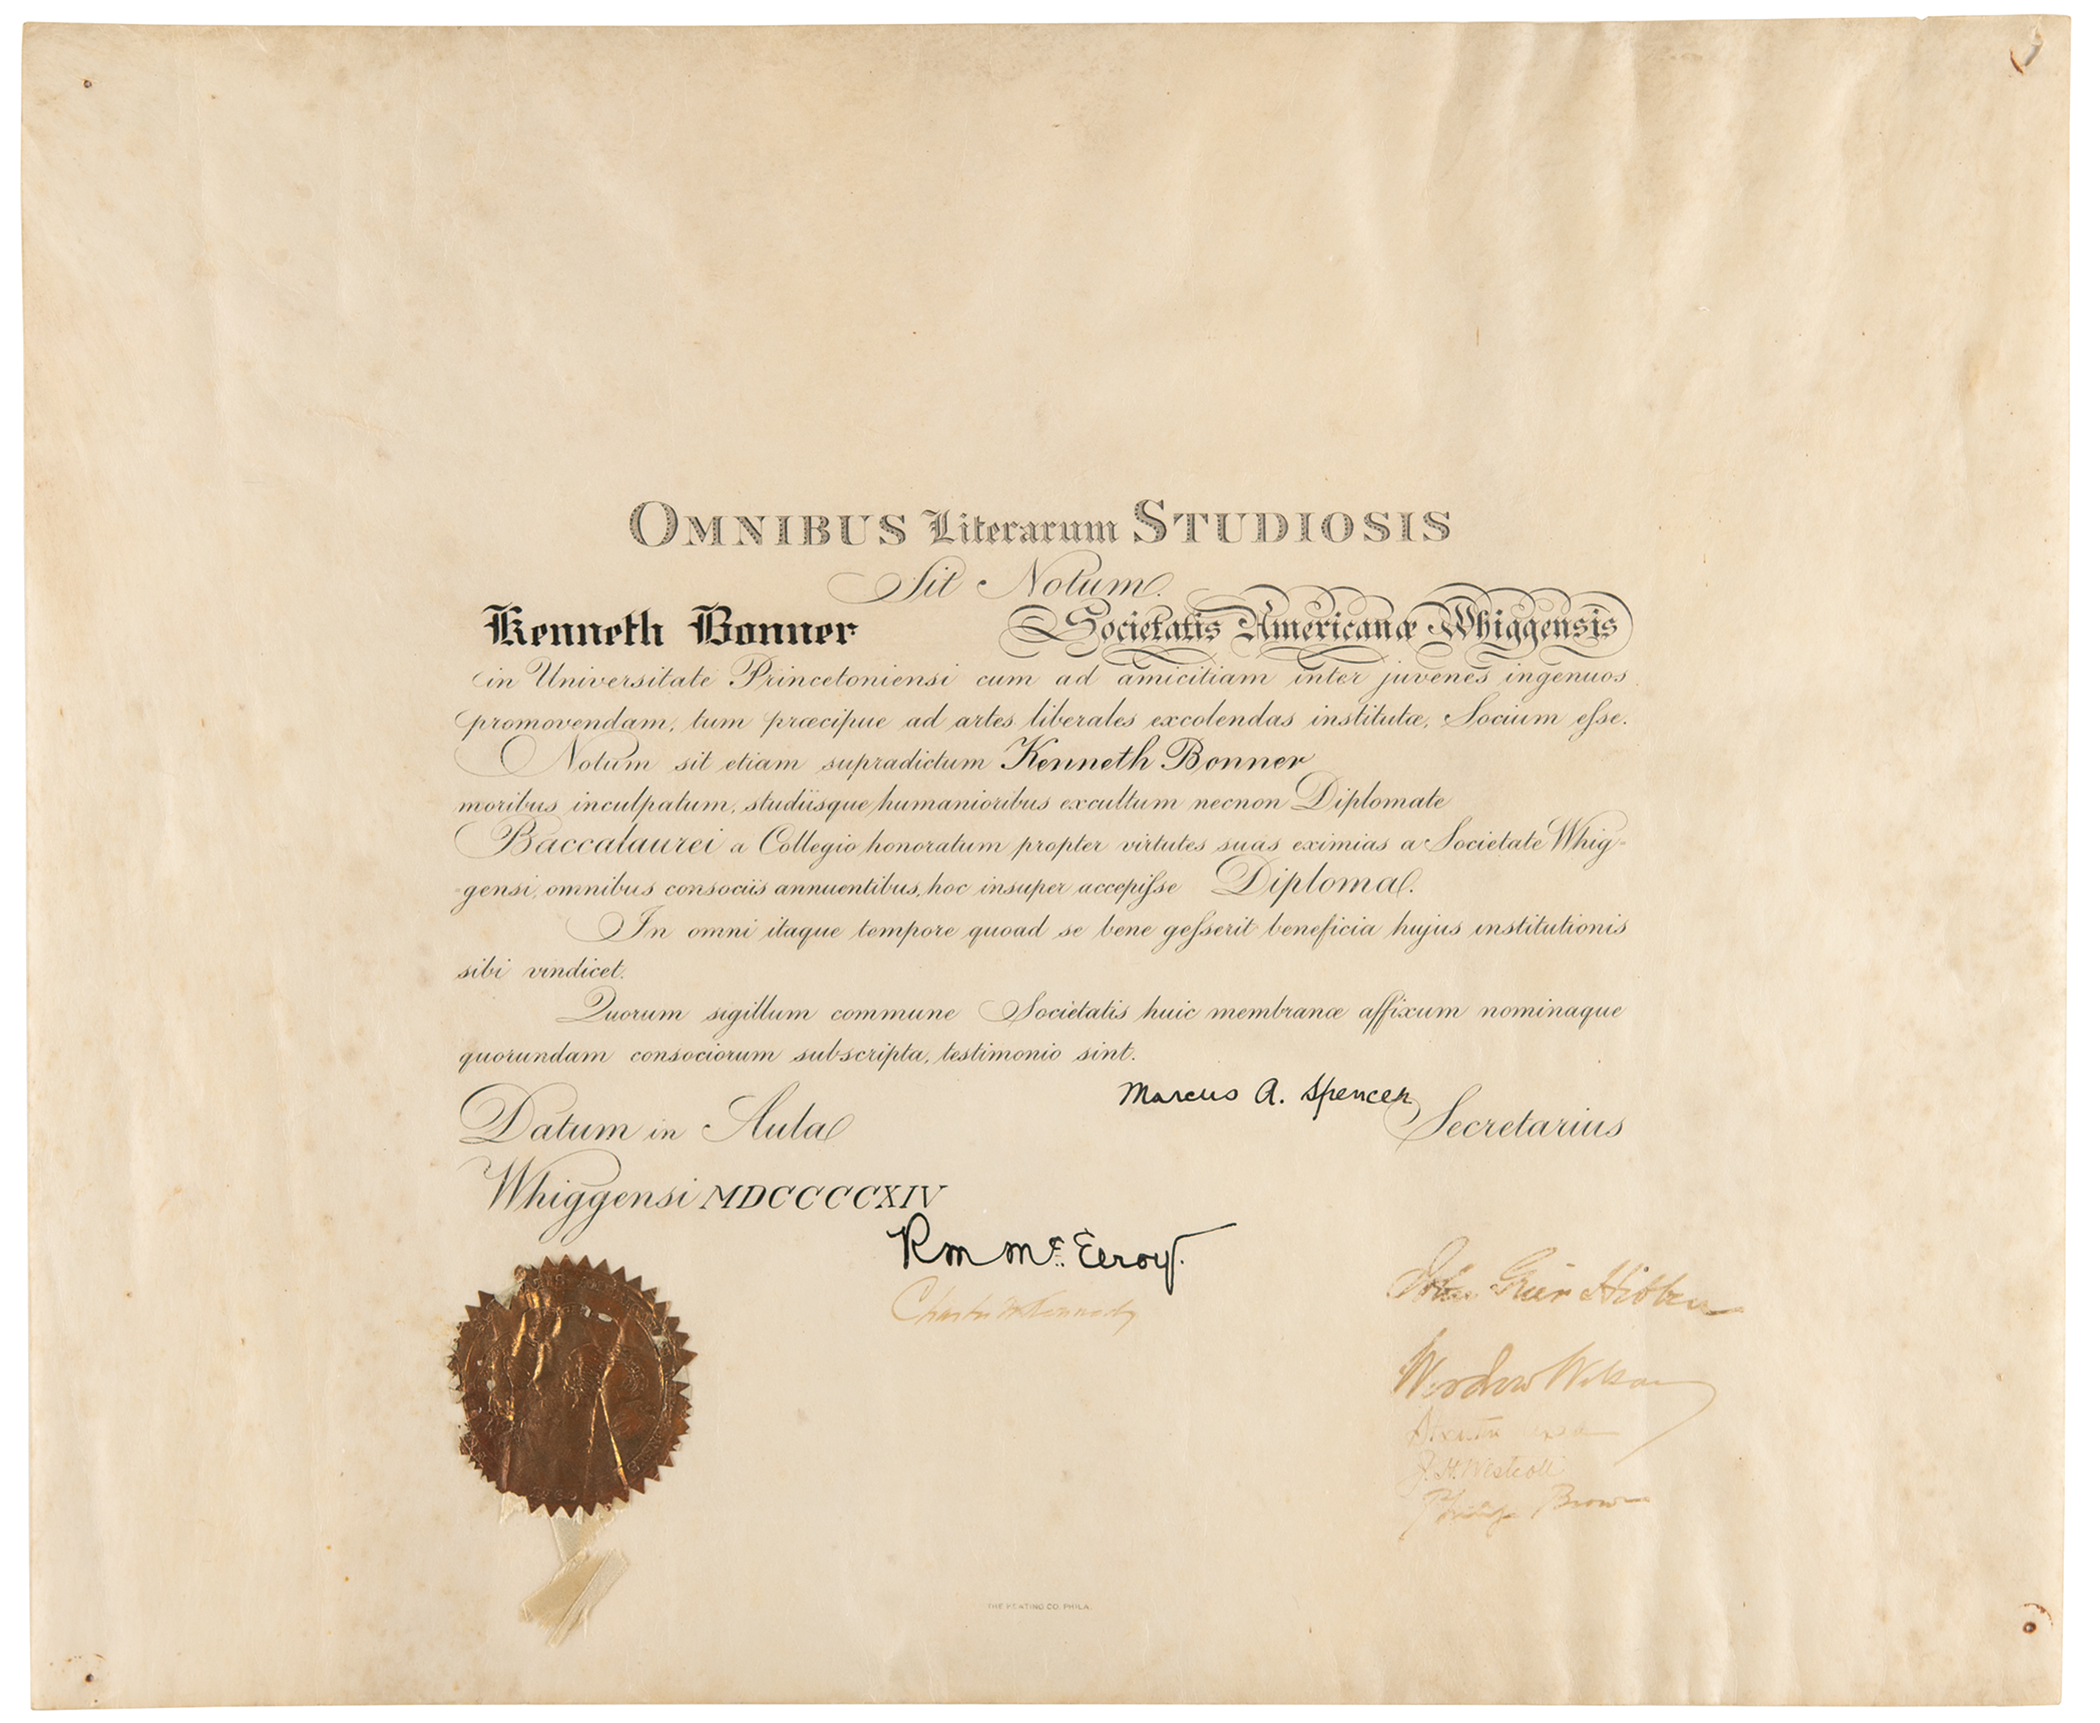 OMNIBUS Literarum STUDIOSIS
Sit Notum.
Kenneth Bonner Societatis Americanæ Whiggensis
in Universitate Princetoniensi cum ad amicitiam inter juvenes ingenuos
promovendam, tum præcipue ad artes liberales excolendas institutæ, Socium esse.
Notum sit etiam supradictum Kenneth Bonner
moribus inculpatum, studiisque humanioribus excultum necnon Diplomate
Baccalaurei a Collegio honoratum propter virtutes suas eximias a Societate Whig-
gensi, omnibus consociis annuentibus, hoc insuper accepisse Diploma.
In omni itaque tempore quoad se bene gesserit beneficia hujus institutionis
sibi vindicet.
Quorum sigillum commune Societatis huic membranæ affixum nominaque
quorundam consociorum subscripta, testimonio sint.
Marcus A. Spencer Secretarius
Datum in Aula
Whiggensi MDCCCCCXIV
R M McElroy.
Charles W. Kennedy
John Grier Hibben
Woodrow Wilson
J. H. Westcott
Philip Brown
THE KEATING CO. PHILA.